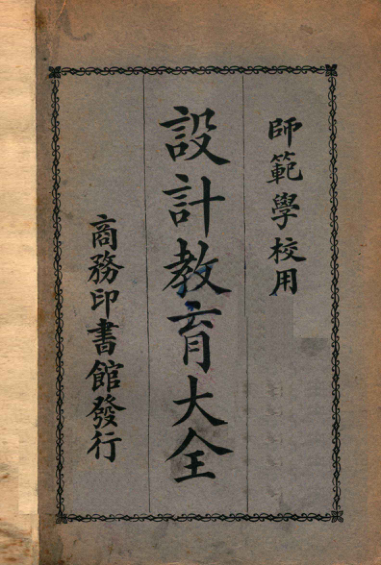 師範學校用
設計教育大全
商務印書館發行